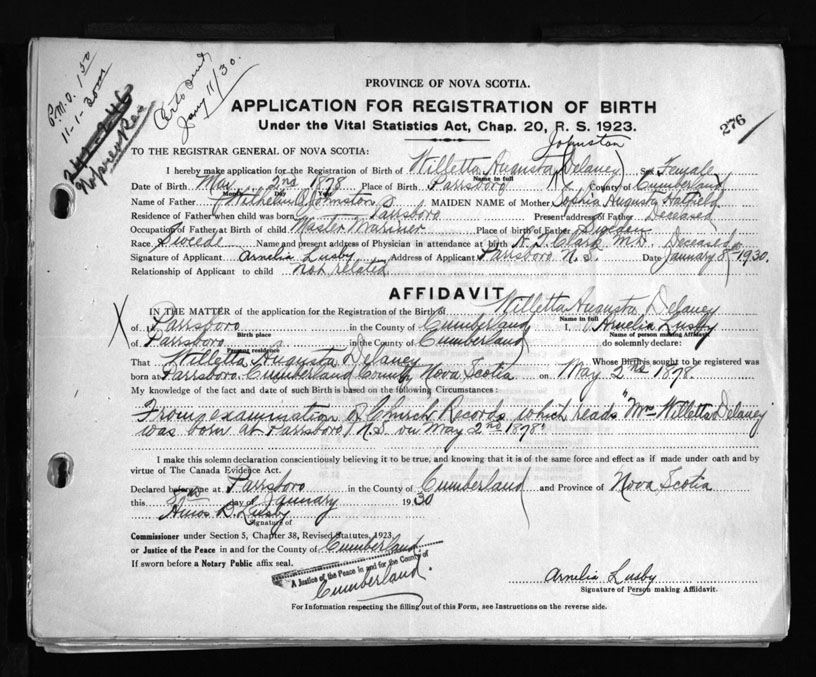 P.M.O. 1 50
11-1-30
Cert. sent
Jany 11/30.
276
PROVINCE OF NOVA SCOTIA.
APPLICATION FOR REGISTRATION OF BIRTH
Under the Vital Statistics Act, Chap. 20, R. S. 1923.
TO THE REGISTRAR GENERAL OF NOVA SCOTIA:
Johnston
I hereby make application for the Registration of Birth of Willetta Augusta Delaney Sex Female
Name in full
Date of Birth May 2nd 1878 Place of Birth Parrsboro County of Cumberland
Month Day Year
Name of Father Wilhelm Johnston MAIDEN NAME of Mother Sophia Augusta Hatfield
Residence of Father when child was born Parrsboro Present address of Father Deceased
Occupation of Father at Birth of child Master Mariner Place of birth of Father Sweden
Race Swede Name and present address of Physician in attendance at birth N. T. Clark M.D. Deceased
Signature of Applicant Amelia Lusby Address of Applicant Parrsboro N.S. Date January 8 1930.
Relationship of Applicant to child not related
AFFIDAVIT
IN THE MATTER of the application for the Registration of the Birth of Willetta Augusta Delaney
Name in full
of Parrsboro in the County of Cumberland I, Amelia Lusby
Birth place Name of person making Affidavit
of Parrsboro in the County of Cumberland do solemnly declare:
Present residence
That Willetta Augusta Delaney Whose Birth is sought to be registered was
born at Parrsboro Cumberland County Nova Scotia on May 2nd 1878.
My knowledge of the fact and date of such Birth is based on the following Circumstances:
From examination of Church Records which reads "Mrs Willetta Delaney
was born at Parrsboro N.S. on May 2nd 1878"
I make this solemn declaration conscientiously believing it to be true, and knowing that it is of the same force and effect as if made under oath and by
virtue of The Canada Evidence Act.
Declared before me at Parrsboro in the County of Cumberland and Province of Nova Scotia
this day of January 1930
Amos D. Lusby
Signature of
Commissioner under Section 5, Chapter 38, Revised Statutes, 1923,
or Justice of the Peace in and for the County of Cumberland
If sworn before a Notary Public affix seal.
A Justice of the Peace in and for the County of
Cumberland.
Amelia Lusby
Signature of Person making Affidavit.
For Information respecting the filling out of this Form, see Instructions on the reverse side.